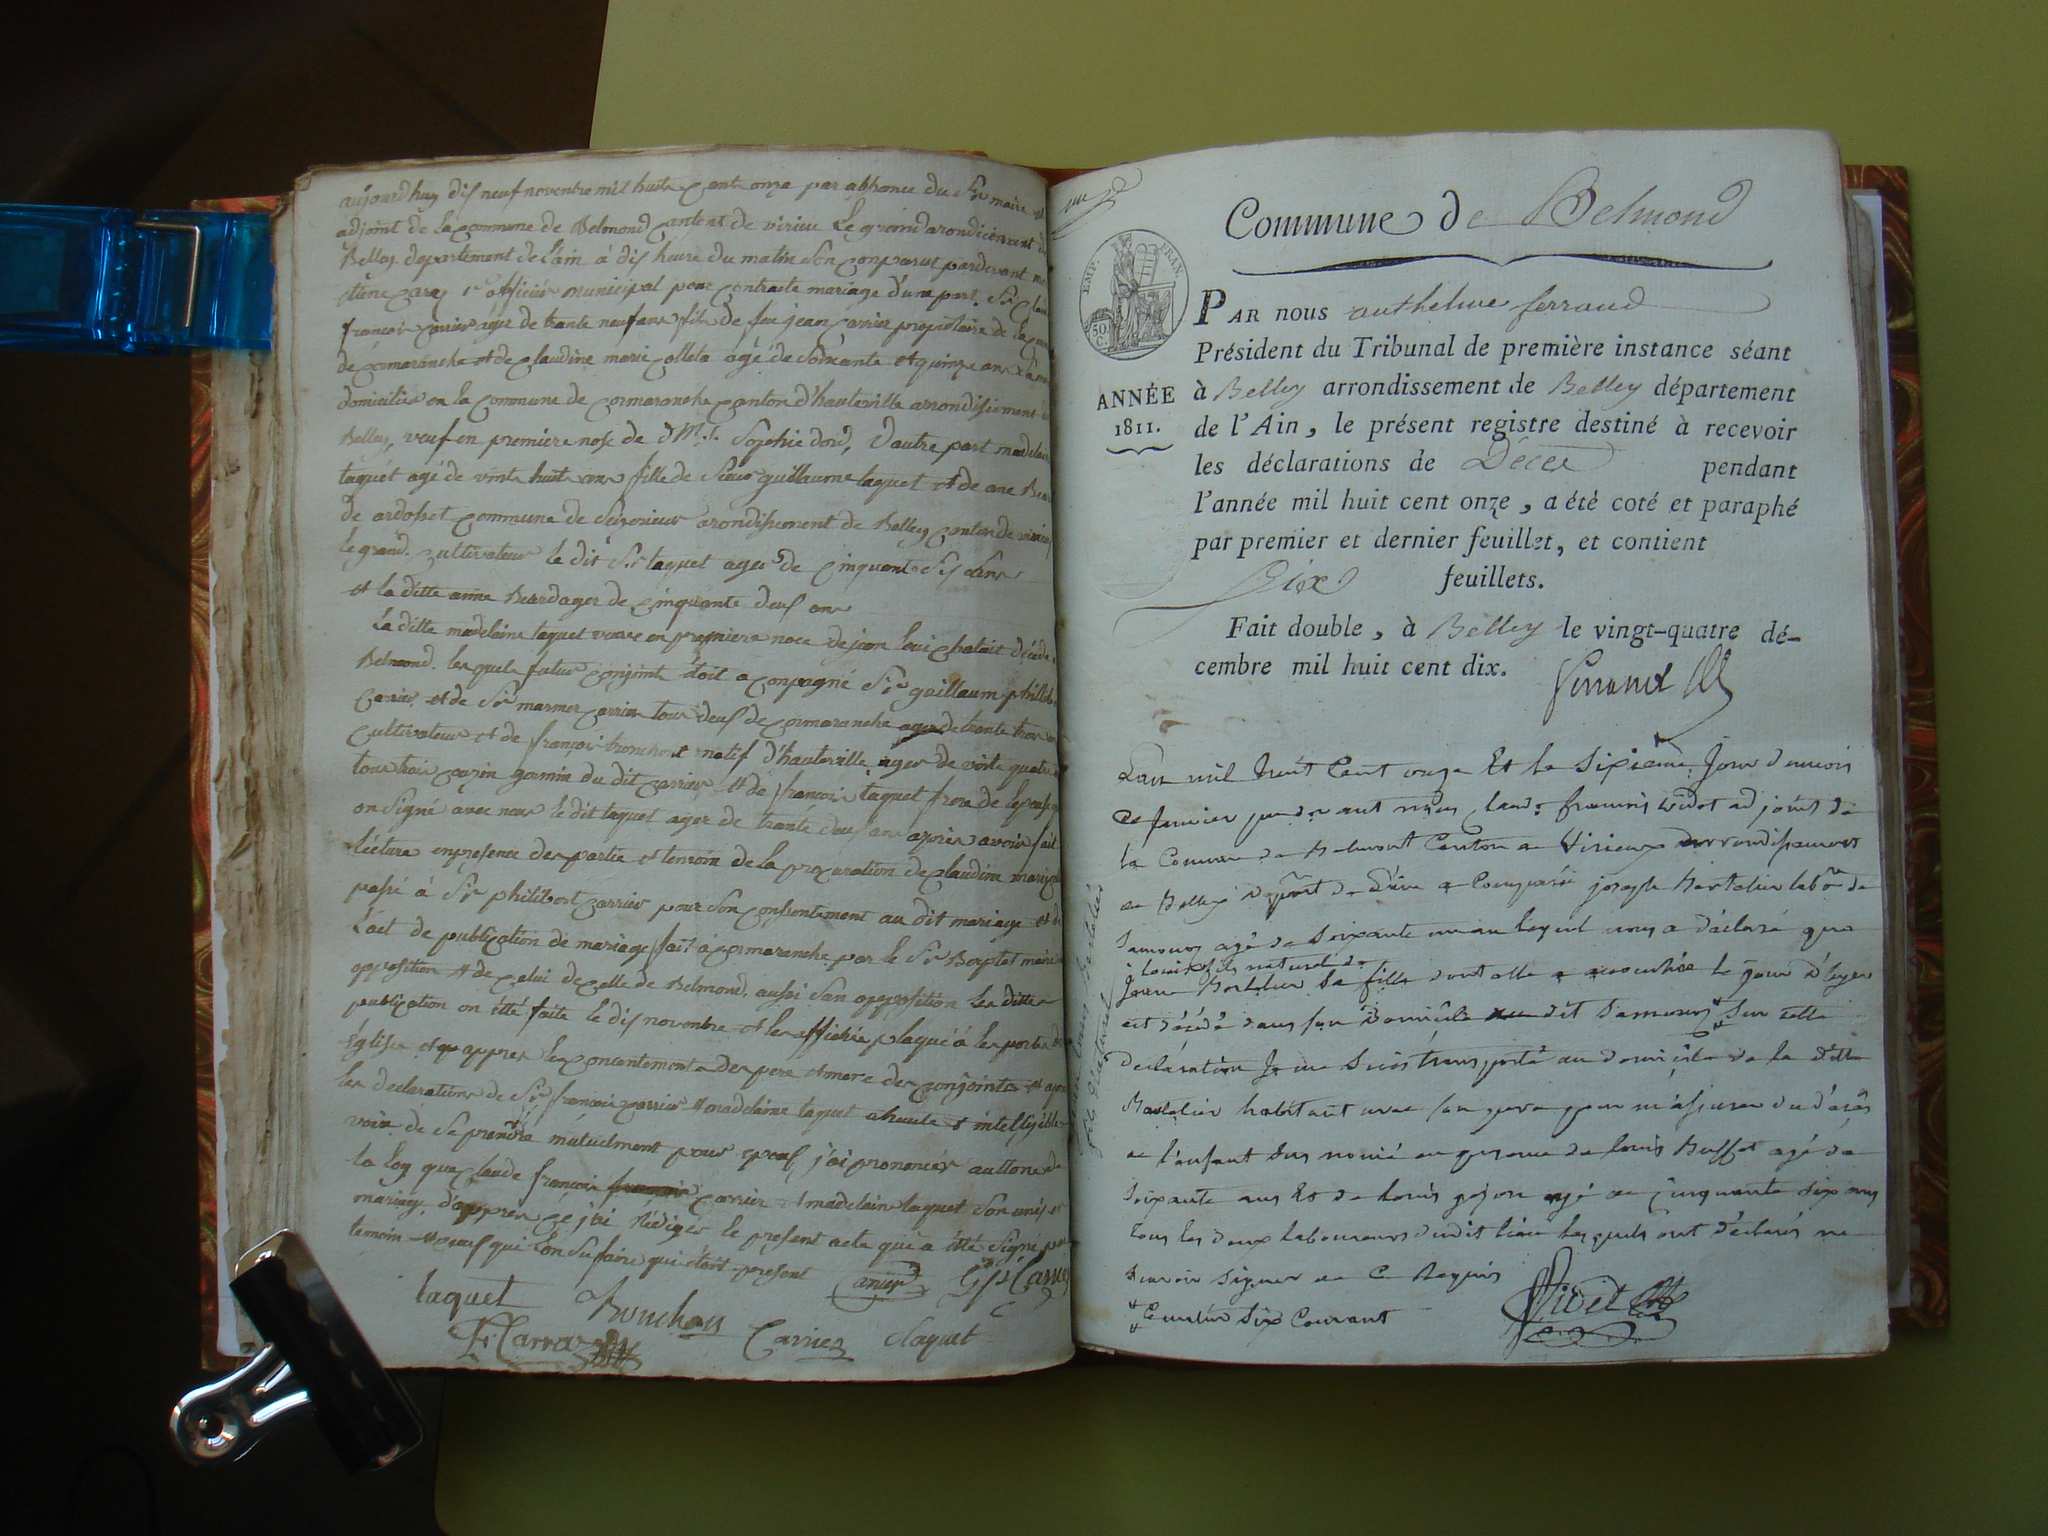 aujourdhuy dis neuf novembre mil huit cent onze par abhance du Sr maire et
adjoint de la commune de Belmond canton de virieu le grand arondicement de
Belley departement de l'ain à dis heure du matin son conparut pardevant
1er officier municipal pour contracte mariage d'une part, Sr
françois carrier agé de trante neuf ans fils de feu jean carrier propriétaire de la
de cormaranche et de claudine marie colleta agé de Soixante et quinze ans
domiciliés en la commune de cormaranche canton d'hauteville arrondissement
Belley, veuf en premiere nose de Sophie dord, d'autre part madelaine
taquet agé de vinte huit ans fille de Sieur guillaume taquet et de ane
de ardosset commune de arondissement de Belley canton de virieu
le grand. cultivateur le dit Sr taquet ager de cinquante Sis ans
et la ditte anne Beard ager de cinquante deus ans
La ditte madelaine taquet veuve en premiere noce de jean loui décédé
Belmond. lesquels futur conjoint étoit aconpagné Sr guillaum philibert
carrier et de Sr carrier tous deus de cormaranche ager de trante trois
cultivateur et de françois natif d'hauteville ager de vinte quatre
tous trois cousin germin du dit carrier et de françois taquet frere de
on signé avec nous le dit taquet ager de trante deus ans après avoir fait
lécture enpresence des partie et temoin de la procuration de claudine marie
passé à Sr philibert carrier pour son consentement au dit mariage et de
L'act de publication de mariage fait à cormaranche par le Sr maire
opposition et de celui de celle de Belmond, aussi san opposition les dittes
publication on étté faite le dis novembre et les affiche plaqué à les porte
églises et apprer le concentement des pere et mere des conjoints et
les declarations de Sr françois carrier et madelaine taquet ahaute et intelligible
voix de se prendre mutuelment pour epous j'ai prononcés au nom de
la loy que claude françois carrier et madelaine taquet son unis en
mariage, d'apprer ce j'ai rédiger le present acte qui a étté signé par
temoin et ceus qui lon su faire qui étoit present
taquet carrier G p Carrier
Carrier Claquet
Commune de Belmond
EMP. FRAN.
50 C.
PAR nous anthelme ferrand
Président du Tribunal de première instance séant
ANNÉE 1811.
à Belley arrondissement de Belley département
de l'Ain, le présent registre destiné à recevoir
les déclarations de Décès pendant
l'année mil huit cent onze, a été coté et paraphé
par premier et dernier feuillet, et contient
Six feuillets.
Fait double, à Belley le vingt-quatre dé-
cembre mil huit cent dix.
Ferrand
L'an mil huit Cent onze Et le Sixième Jour du mois
de Janvier par devant nous Claude françois vidot adjoint de
la Commune de Belmont Canton de Virieux arrondissement
de Belley Dépmt de L'ain a Comparu joseph Bertelier labr de
Samonos agé de Soixante un an lequel nous a déclaré que
Louis fils naturel de
Jeanne Bertelier Sa fille dont elle a accouchée le jour d'hyer
est décédé dans Son Domicile au dit Samonos Sur cette
declaration Je me Suis transporté au domicile de la ditte
Bertelier habitant avec Son pere pour m'assurer du décès
de l'enfant Sus nomé en presence de louis Buffet agé de
Soixante ans Et de louis agé de Cinquante dix ans
tous les deux laboureurs dudit lieu lesquels ont déclarés ne
Scavoir Signer de Ce Requis
Six Courant
Vidot